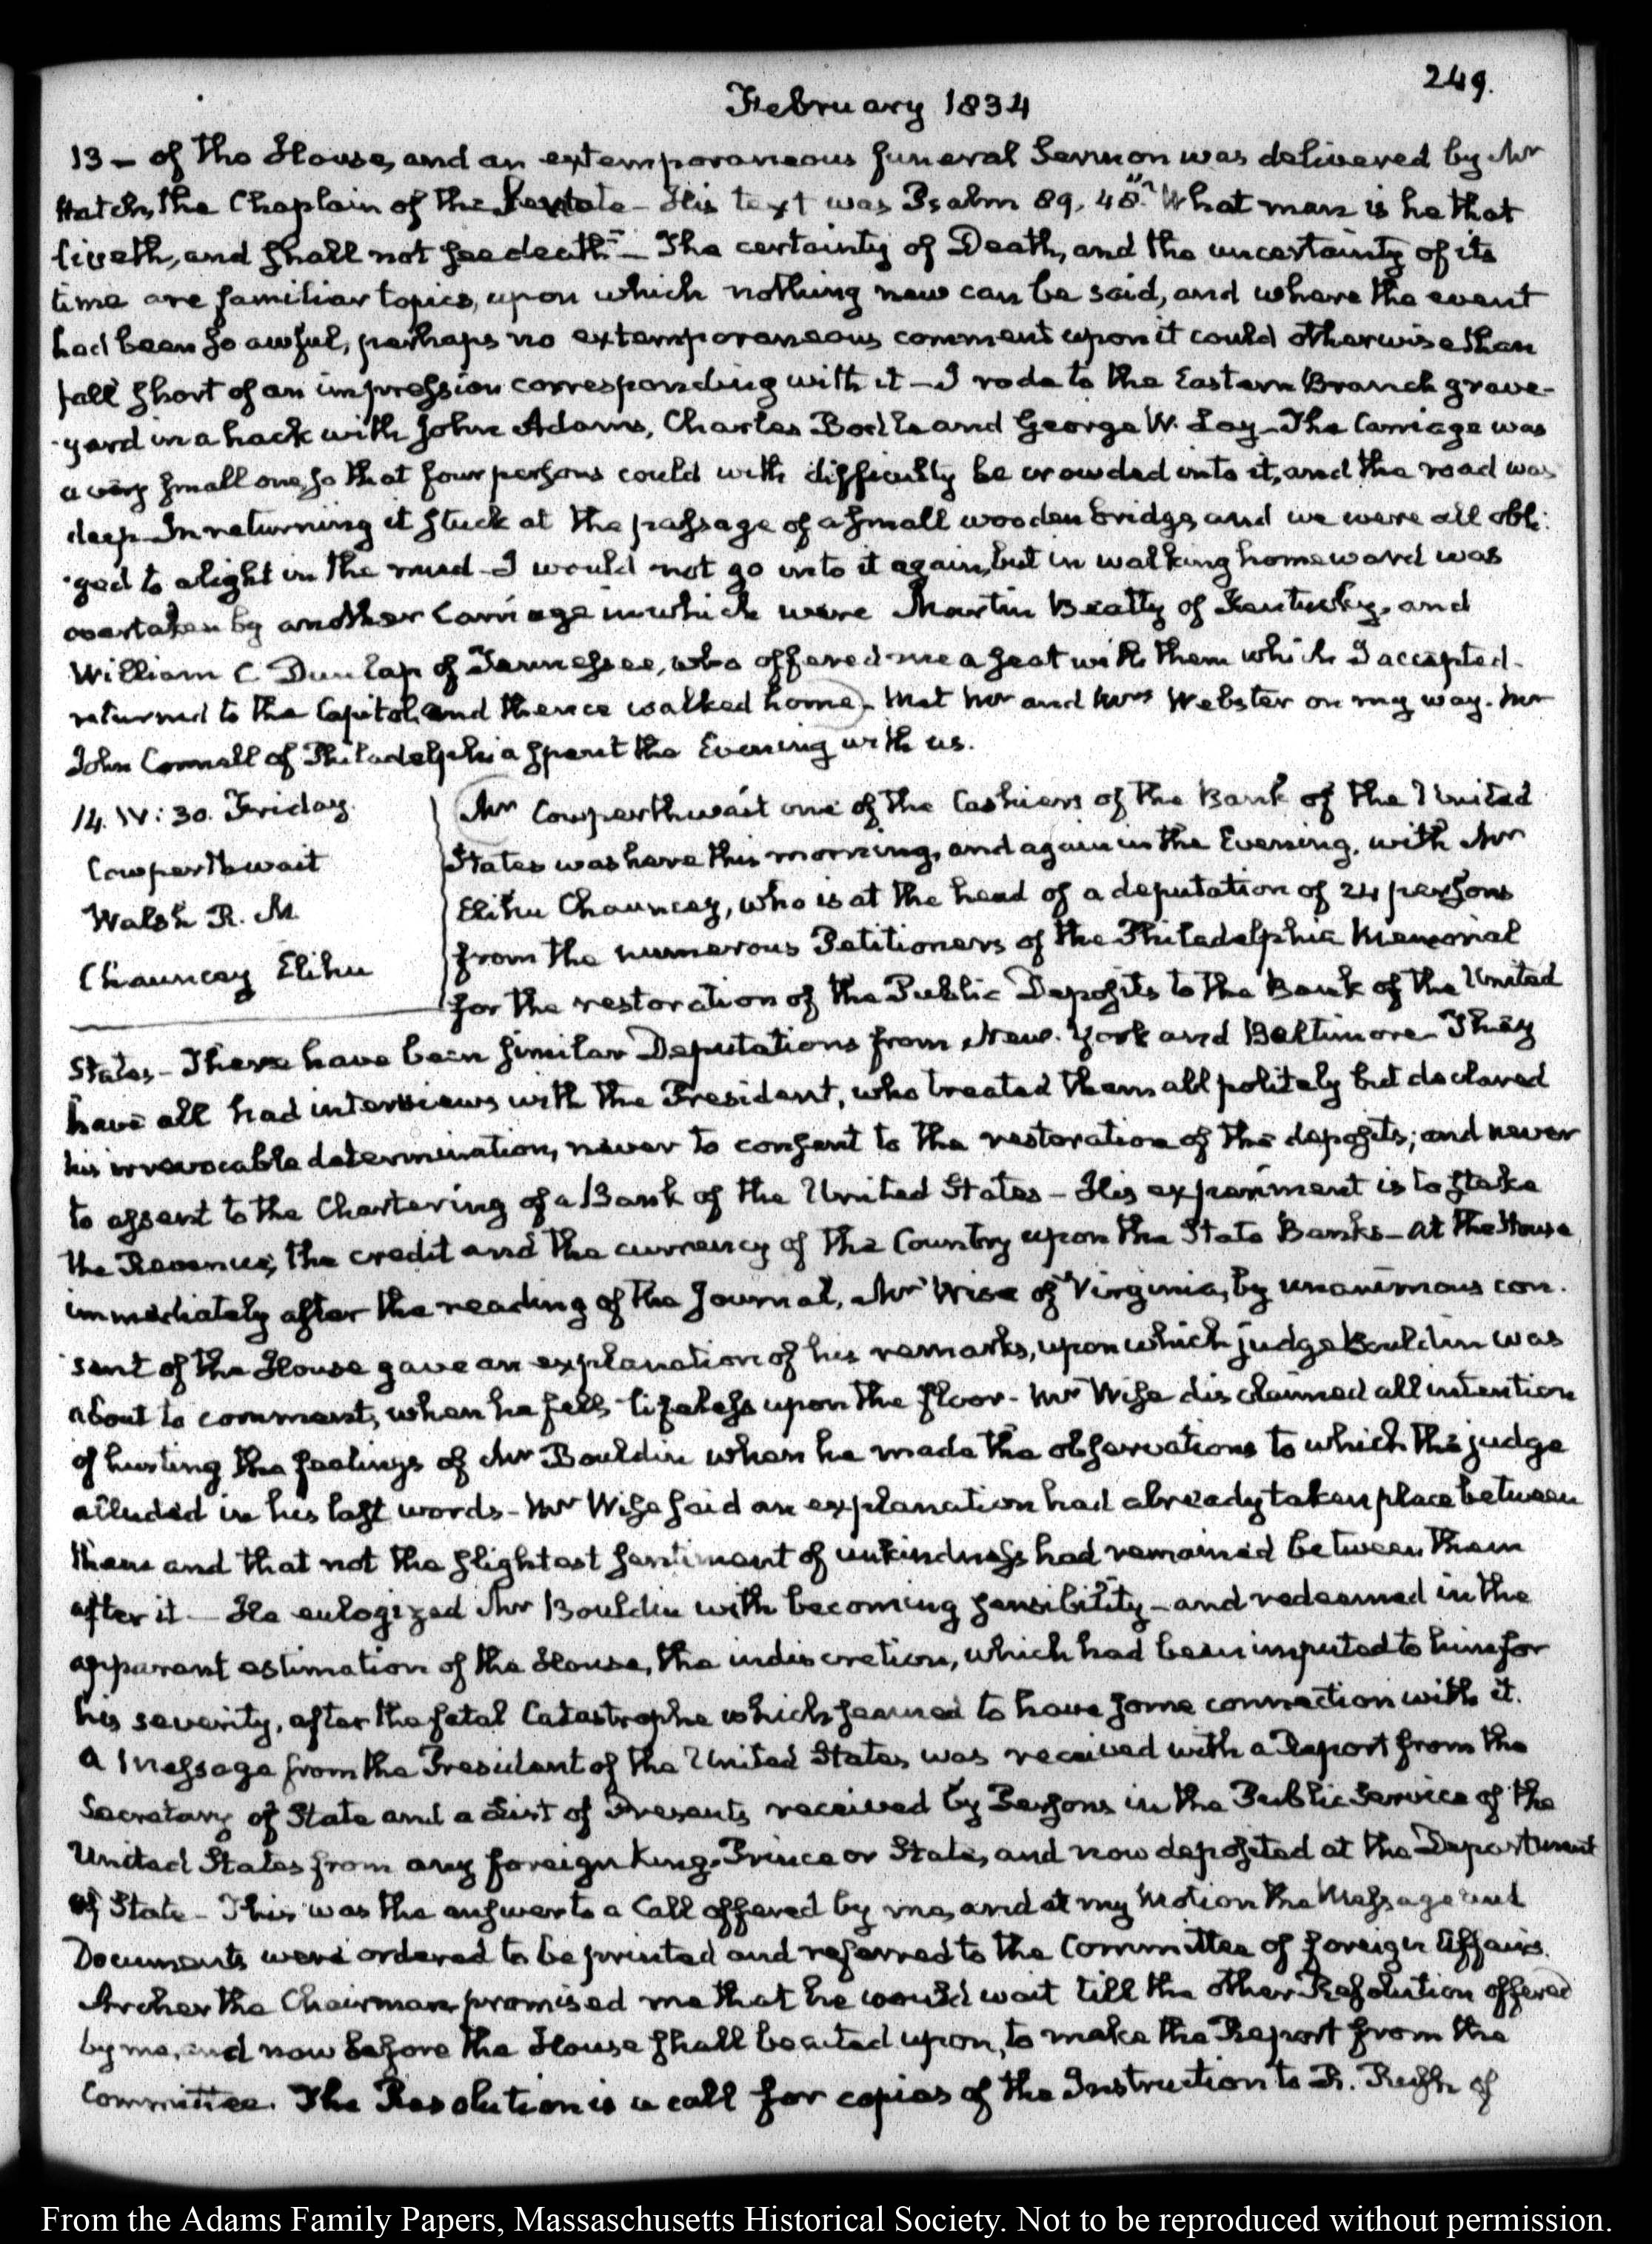 249.
February 1834
13 - of the House, and an extemporaneous funeral Sermon was delivered by Mr
Hatch, the Chaplain of the Senate - His text was Psalm 89. 48. "What man is he that
liveth, and shall not see death" - The certainty of Death, and the uncertainty of its
time are familiar topics, upon which nothing new can be said, and where the event
had been so awful, perhaps no extemporaneous comment upon it could otherwise than
fall short of an impression corresponding with it - I rode to the Eastern Branch grave-
yard in a hack with John Adams, Charles and George W. Lay - The Carriage was
a very small one, so that four persons could with difficulty be crowded into it, and the road was
deep - In returning it stuck at the passage of a small wooden bridge, and we were all obli-
ged to alight in the mud - I would not go into it again, but in walking homeward was
overtaken by another Carriage in which were Martin Beatty of Kentucky, and
William C Dunlap of Tennessee, who offered me a seat with them which I accepted -
returned to the Capitol, and thence walked home. Met Mr and Mrs Webster on my way. Mr
John Connell of Philadelphia spent the Evening with us.
14. IV: 30. Friday.
Cowperthwait
Walsh R. M.
Chauncey Elihu
Mr Cowperthwait one of the Cashiers of the Bank of the United
States was here this morning, and again in the Evening, with Mr
Elihu Chauncey, who is at the head of a deputation of 24 persons
from the numerous Petitioners of the Philadelphia Memorial
for the restoration of the Public Deposits to the Bank of the United
States - There have been similar Deputations from New-York and Baltimore - They
have all had interviews with the President, who treated them all politely but declared
his irrevocable determination, never to consent to the restoration of the deposits; and never
to assent to the Chartering of a Bank of the United States - His experiment is to stake
the Revenue, the credit and the currency of the Country upon the State Banks - At the House
immediately after the reading of the Journal, Mr Wise of Virginia, by unanimous con-
sent of the House gave an explanation of his remarks, upon which judge Bouldin was
about to comment, when he fell lifeless upon the floor - Mr Wise disclaimed all intention
of hurting the feelings of Mr Bouldin when he made the observations to which the judge
alluded in his last words - Mr Wise said an explanation had already taken place between
them and that not the slightest sentiment of unkindness had remained between them
after it - He eulogized Mr Bouldin with becoming sensibility - and redeemed in the
apparent estimation of the House, the indiscretion, which had been imputed to him for
his severity, after the fatal Catastrophe which seemed to have some connection with it.
A Message from the President of the United States was received with a Report from the
Secretary of State and a List of Presents received by Persons in the Public Service of the
United States from any foreign King, Prince or State, and now deposited at the Department
of State - This was the answer to a Call offered by me, and at my Motion the Message and
Documents were ordered to be printed and referred to the Committee of foreign Affairs.
Archer the Chairman promised me that he would wait till the other Resolution offered
by me, and now before the House shall be acted upon, to make the Report from the
Committee. The Resolution is a call for copies of the Instruction to R. Rush of
From the Adams Family Papers, Massachusetts Historical Society. Not to be reproduced without permission.